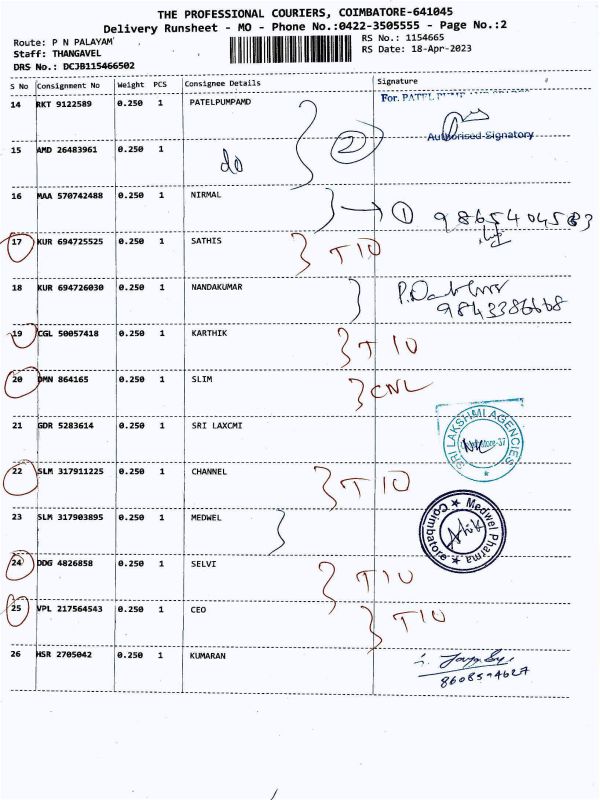 THE PROFESSIONAL COURIERS, COIMBATORE-641045
Delivery Runsheet - MO - Phone No.:0422-3505555 - Page No.:2
Route: P N PALAYAM
RS No.: 1154665
Staff: THANGAVEL
RS Date: 18-Apr-2023
DRS No.: DCJB115466502
S No Consignment No Weight PCS Consignee Details Signature
14 RKT 9122589 0.250 1 PATELPUMPAMD
For. PATEL
Authorised Signatory
15 AMD 26483961 0.250 1 do 2
16 MAA 570742488 0.250 1 NIRMAL
1 9865404583
17 KUR 694725525 0.250 1 SATHIS T10
18 KUR 694726030 0.250 1 NANDAKUMAR
9843386668
19 CGL 50057418 0.250 1 KARTHIK T10
20 OMN 864165 0.250 1 SLIM CNL
21 GDR 5283614 0.250 1 SRI LAXCMI
SRI LAKSHMI AGENCIES
22 SLM 317911225 0.250 1 CHANNEL T10
23 SLM 317903895 0.250 1 MEDWEL
Medwel Pharma
Coimbatore
24 DDG 4826858 0.250 1 SELVI T10
25 VPL 217564543 0.250 1 CEO T10
26 HSR 2705042 0.250 1 KUMARAN
8608594627